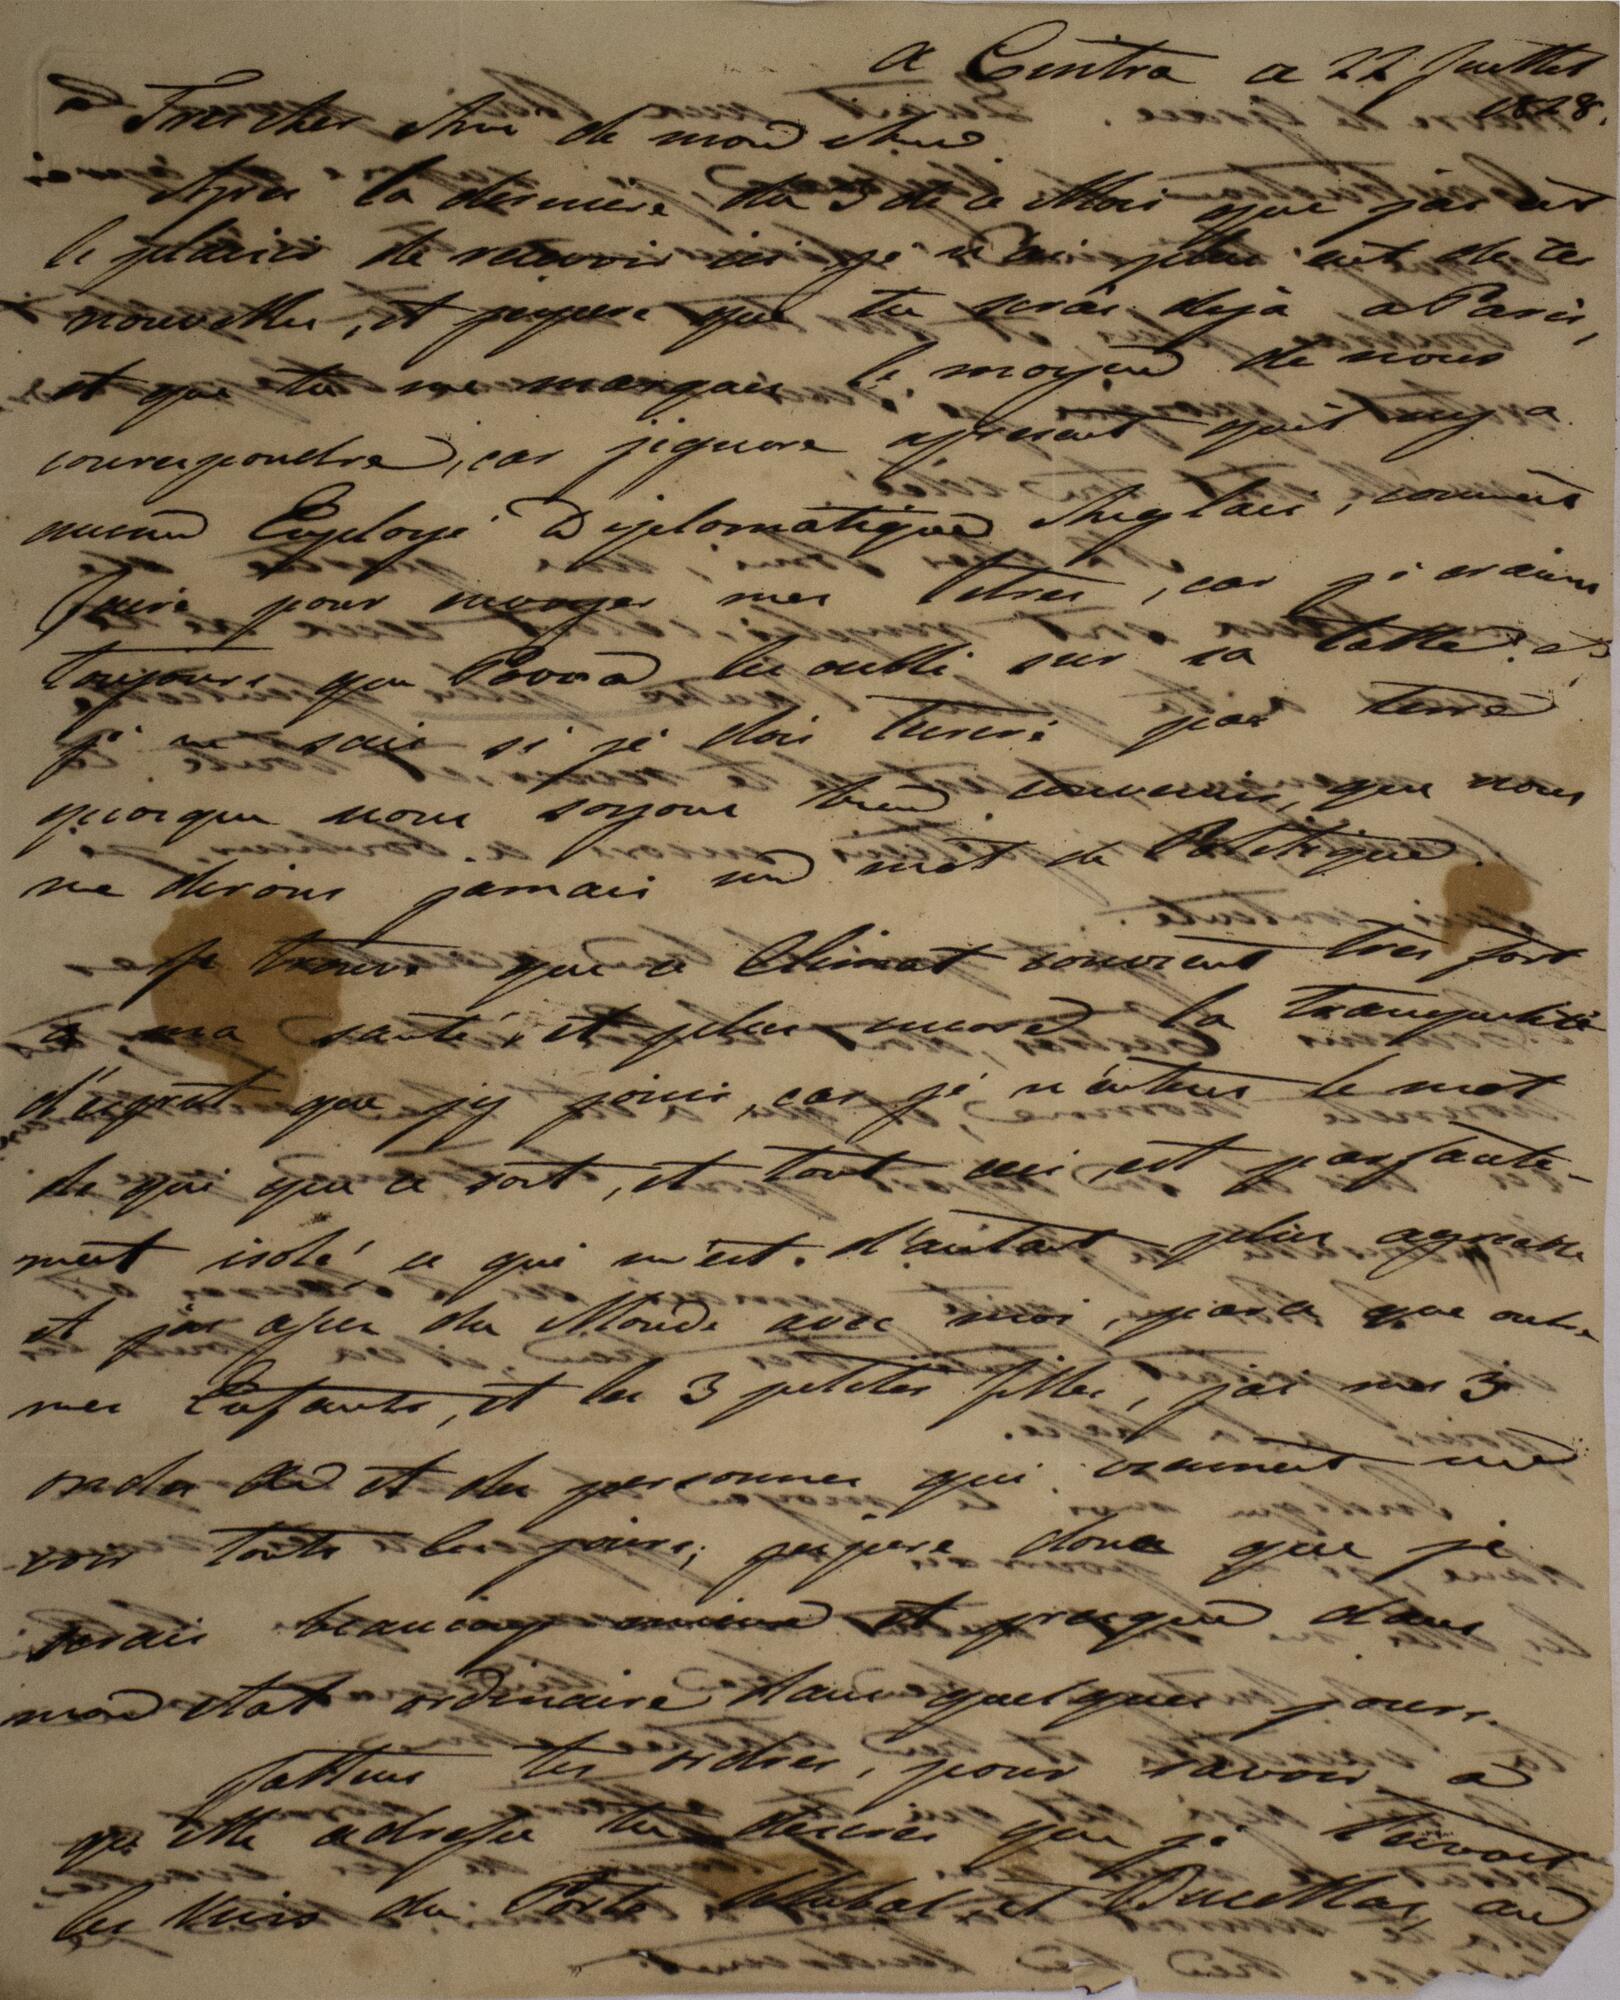 a Cintra a 22 Juillet
1828.
Trescher Ame de mond Ame
Apres la derniere du 3 de ce Mois que jai eut
le plaisir de recevoir ici je n'ai plus eut de tes
nouvelles, et jespere que tu serais dejà a Paris,
et que tu me marques le moyend de nous
courespondre, car jignore apresent qu'il ny a
aucund Employé Diplomatique Anglais, comment
faire pour envoyer mes letres, car je crains
toujours que Povoa les oubli sur sa table. et
je ne sais si je dois t'ecrire par terre
quoique nous soyons bien convenus, que nous
ne dirons jamais und mot de Politique.
Je trouve que ce Climat convient tres fort
a ma santé, et plus encore la tranquilité
d'esprit que jy jouis, car je n'entens le mot
de qui que ce soit, et tout ceci est parfaite-
ment isolé, ce qui m'est d'autant plus agreable
et jai assez du Monde avec moi, parce que outre
mes Enfants, et les 3 petites filles, jai mes 3
et des personnes qui viennent me
voir touts les jours; jespere donc que je
serais beaucoup mieux et presque dans
mond etat ordinaire dans quelques jours.
Jattens tes ordres, pour savoir à
qu'elle adresse tu desires que je t'envoie
les Vins du Porto Setubal, et Bucellas, and